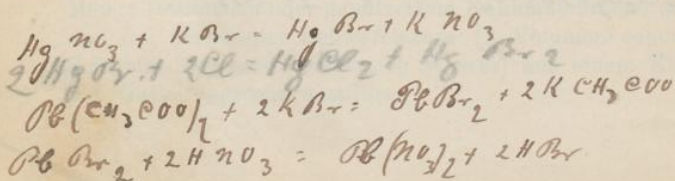 Hg NO3 + K Br = Hg Br + K NO3
2 Hg Br + 2Cl = HgCl2 + Hg Br2
Pb(CH3COO)2 + 2KBr = PbBr2 + 2K CH3COO
Pb Br2 + 2H NO3 = Pb(NO3)2 + 2HBr